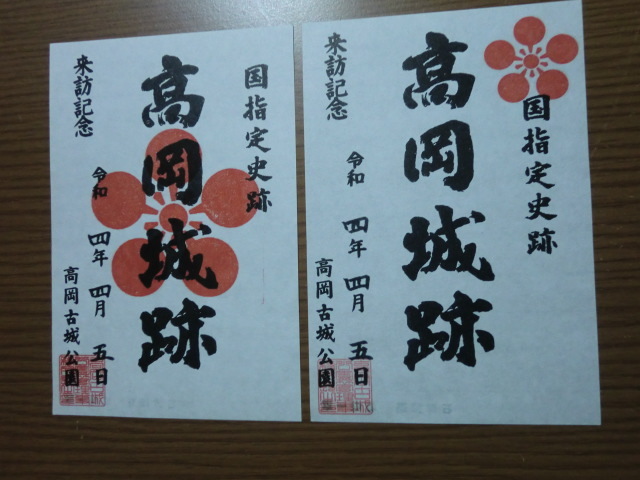 国指定史跡
高岡城跡
来訪記念
令和四年四月五日
高岡古城公園
国指定史跡
高岡城跡
来訪記念
令和四年四月五日
高岡古城公園